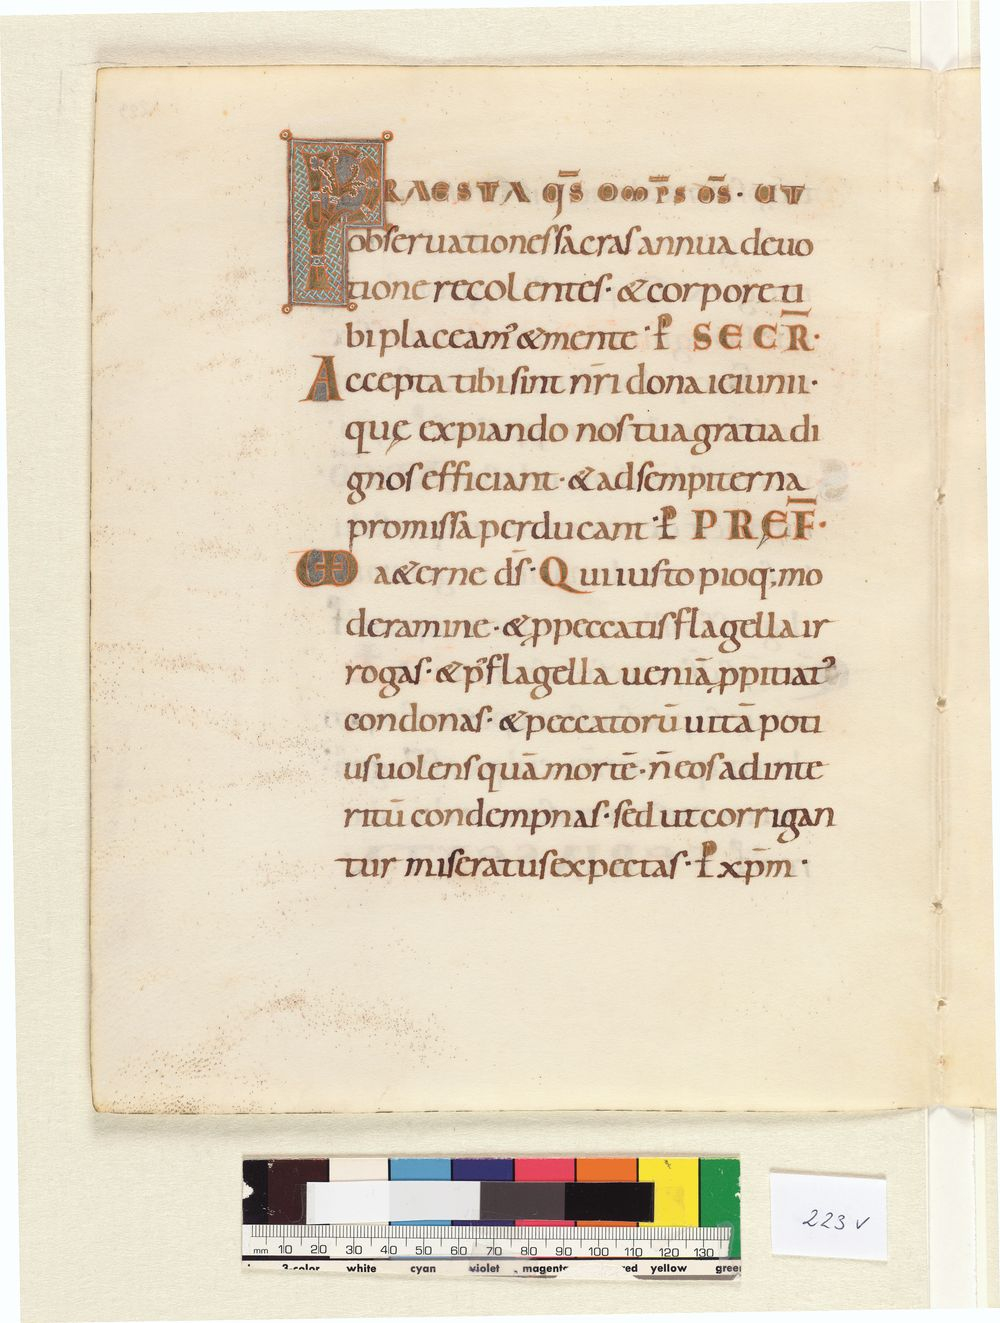 PRAESTA q̄s om̄ps d̄s. UT
observationes sacras annua devo
tione recolentes. & corpore ti
bi placeam᾽ & mente. P̱ SECR̄.
Accepta tibi sint nr̄i dona ieiunii.
quę expiando nos tua gratia di
gnos efficiant. & ad sempiterna
promissa perducant. P̱ PRĘF̄.
VD a&erne ds̄. Qui iusto pioq; mo
deramine. & ꝓ peccatis flagella ir
rogas. & p᾽ flagella veniā ꝓpitiat᾽
condonas. & peccatorū vitā poti
us volens quā mortē. n̄ eos ad inte
ritū condempnas. sed ut corrigan
tur miseratus expectas. P̱ xp̄m.
223 v
mm 10 20 30 40 50 60 70 80 90 100 110 120 130
3-color white cyan violet magenta red yellow green